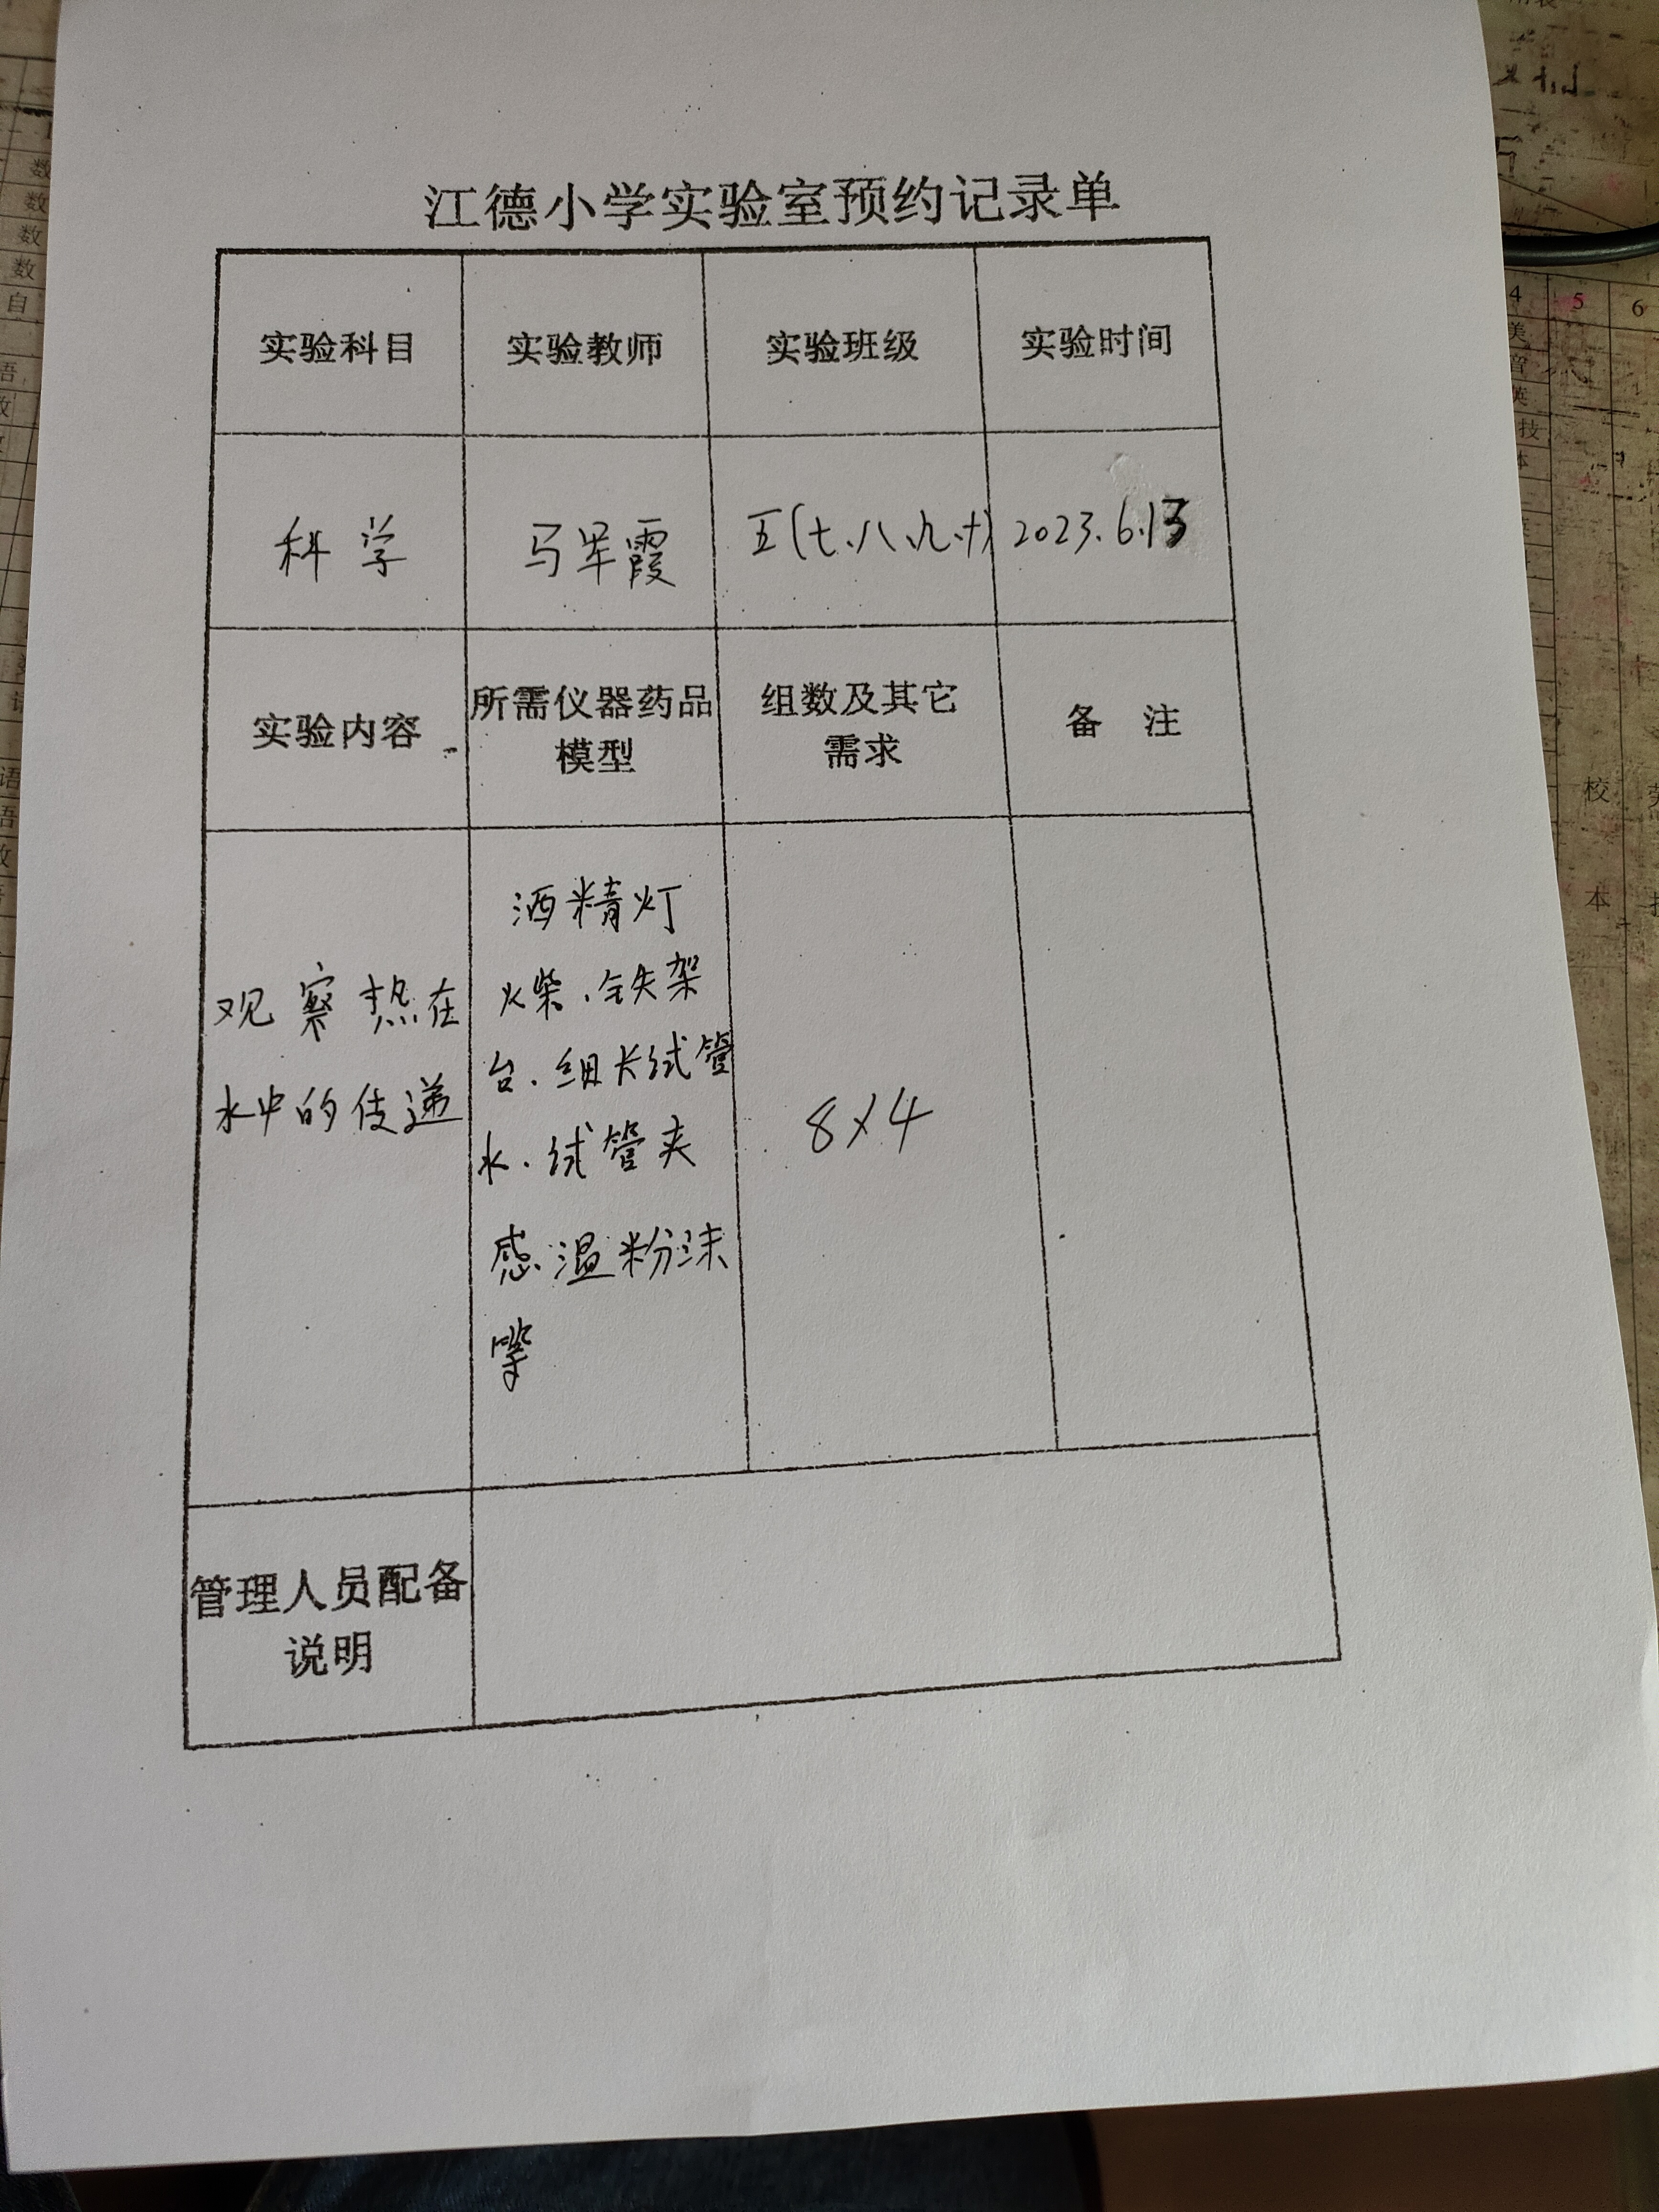 江德小学实验室预约记录单
实验科目 实验教师 实验班级 实验时间
科学 马军霞 五(七、八、九、十) 2023.6.13
实验内容 所需仪器药品 组数及其它 备 注
模型 需求
观察热在
水中的传递
酒精灯
火柴、铁架
台、细长试管
水、试管夹
感温粉沫
等
8×4
管理人员配备
说明